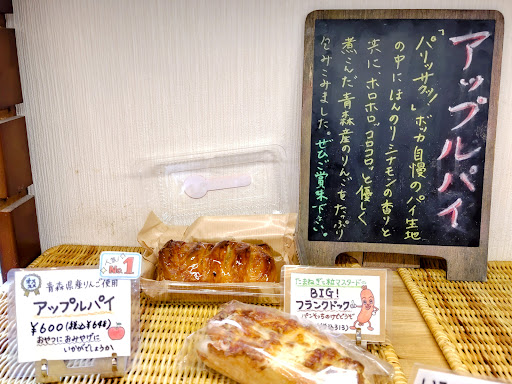 アップルパイ
「パリッサクッ!」ボッカ自慢のパイ生地
の中にほんのりシナモンの香りと
共に、ホロホロッコロコロッと優しく
煮こんだ青森産のりんごをたっぷり
包みこみました。ぜひご賞味下さい。
人気 No.1
青森県産りんご使用
アップルパイ
¥600(税込¥648)
おやつにおみやげに
いかがでしょうか
たまねぎと粒マスタードの
BIG!
フランクドック
パンモッちのけどぞう